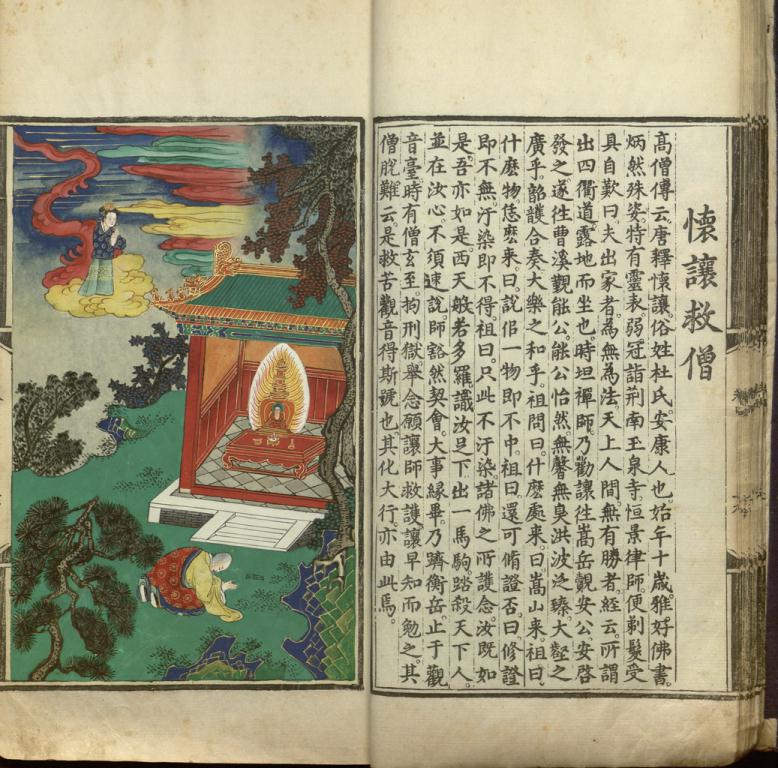 懷讓救僧
高僧傳云。唐釋懷讓。俗姓杜氏。安康人也。始年十歲。雅好佛書。
炳然殊姿。特有靈表。弱冠詣荆南玉泉寺。恒景律師。便剃髮受
具。自歎曰。夫出家者。為無為法。天上人間。無有勝者。經云。所謂
出四衢道。露地而坐也。時坦禪師。乃勸讓往嵩岳。覲安公。安啓
發之。遂往曹溪。觀能公。能公怡然。無馨無臭。洪波泛臻。大壑之
廣乎。韶頀合奏。大樂之和乎。祖問曰。什麽處來。曰嵩山來。祖曰。
什麽物。恁麽來。曰說佀一物即不中。祖曰。還可脩證否。曰修證
即不無。汙染即不得。祖曰。只此不汙染。諸佛之所護念。汝既如
是。吾亦如是。西天般若多羅讖。汝足下出一馬駒。踏殺天下人。
並在汝心。不須速說。師豁然契會。大事緣畢。乃躋衡岳。止于觀
音臺。時有僧玄至。拘刑獄。舉念願讓師救護。讓早知而勉之。其
僧脫難。云是救苦觀音。得斯號也。其化大行。亦由此焉。